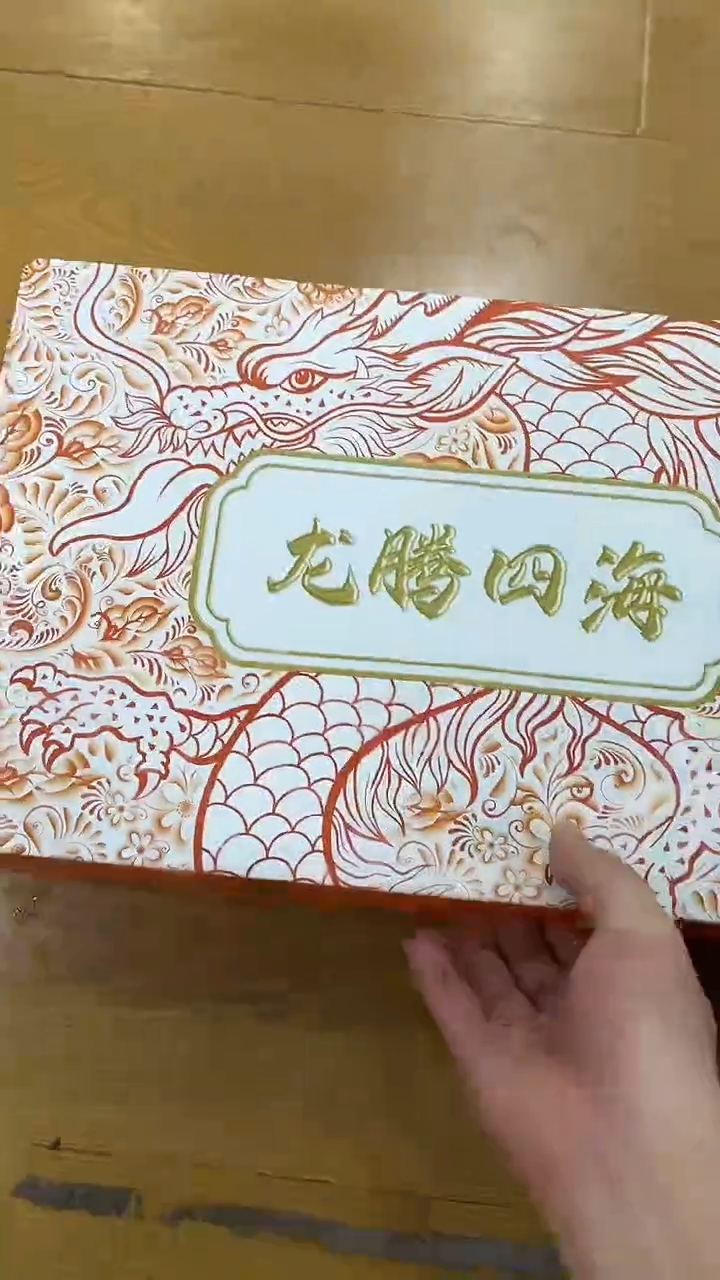 龙腾四海